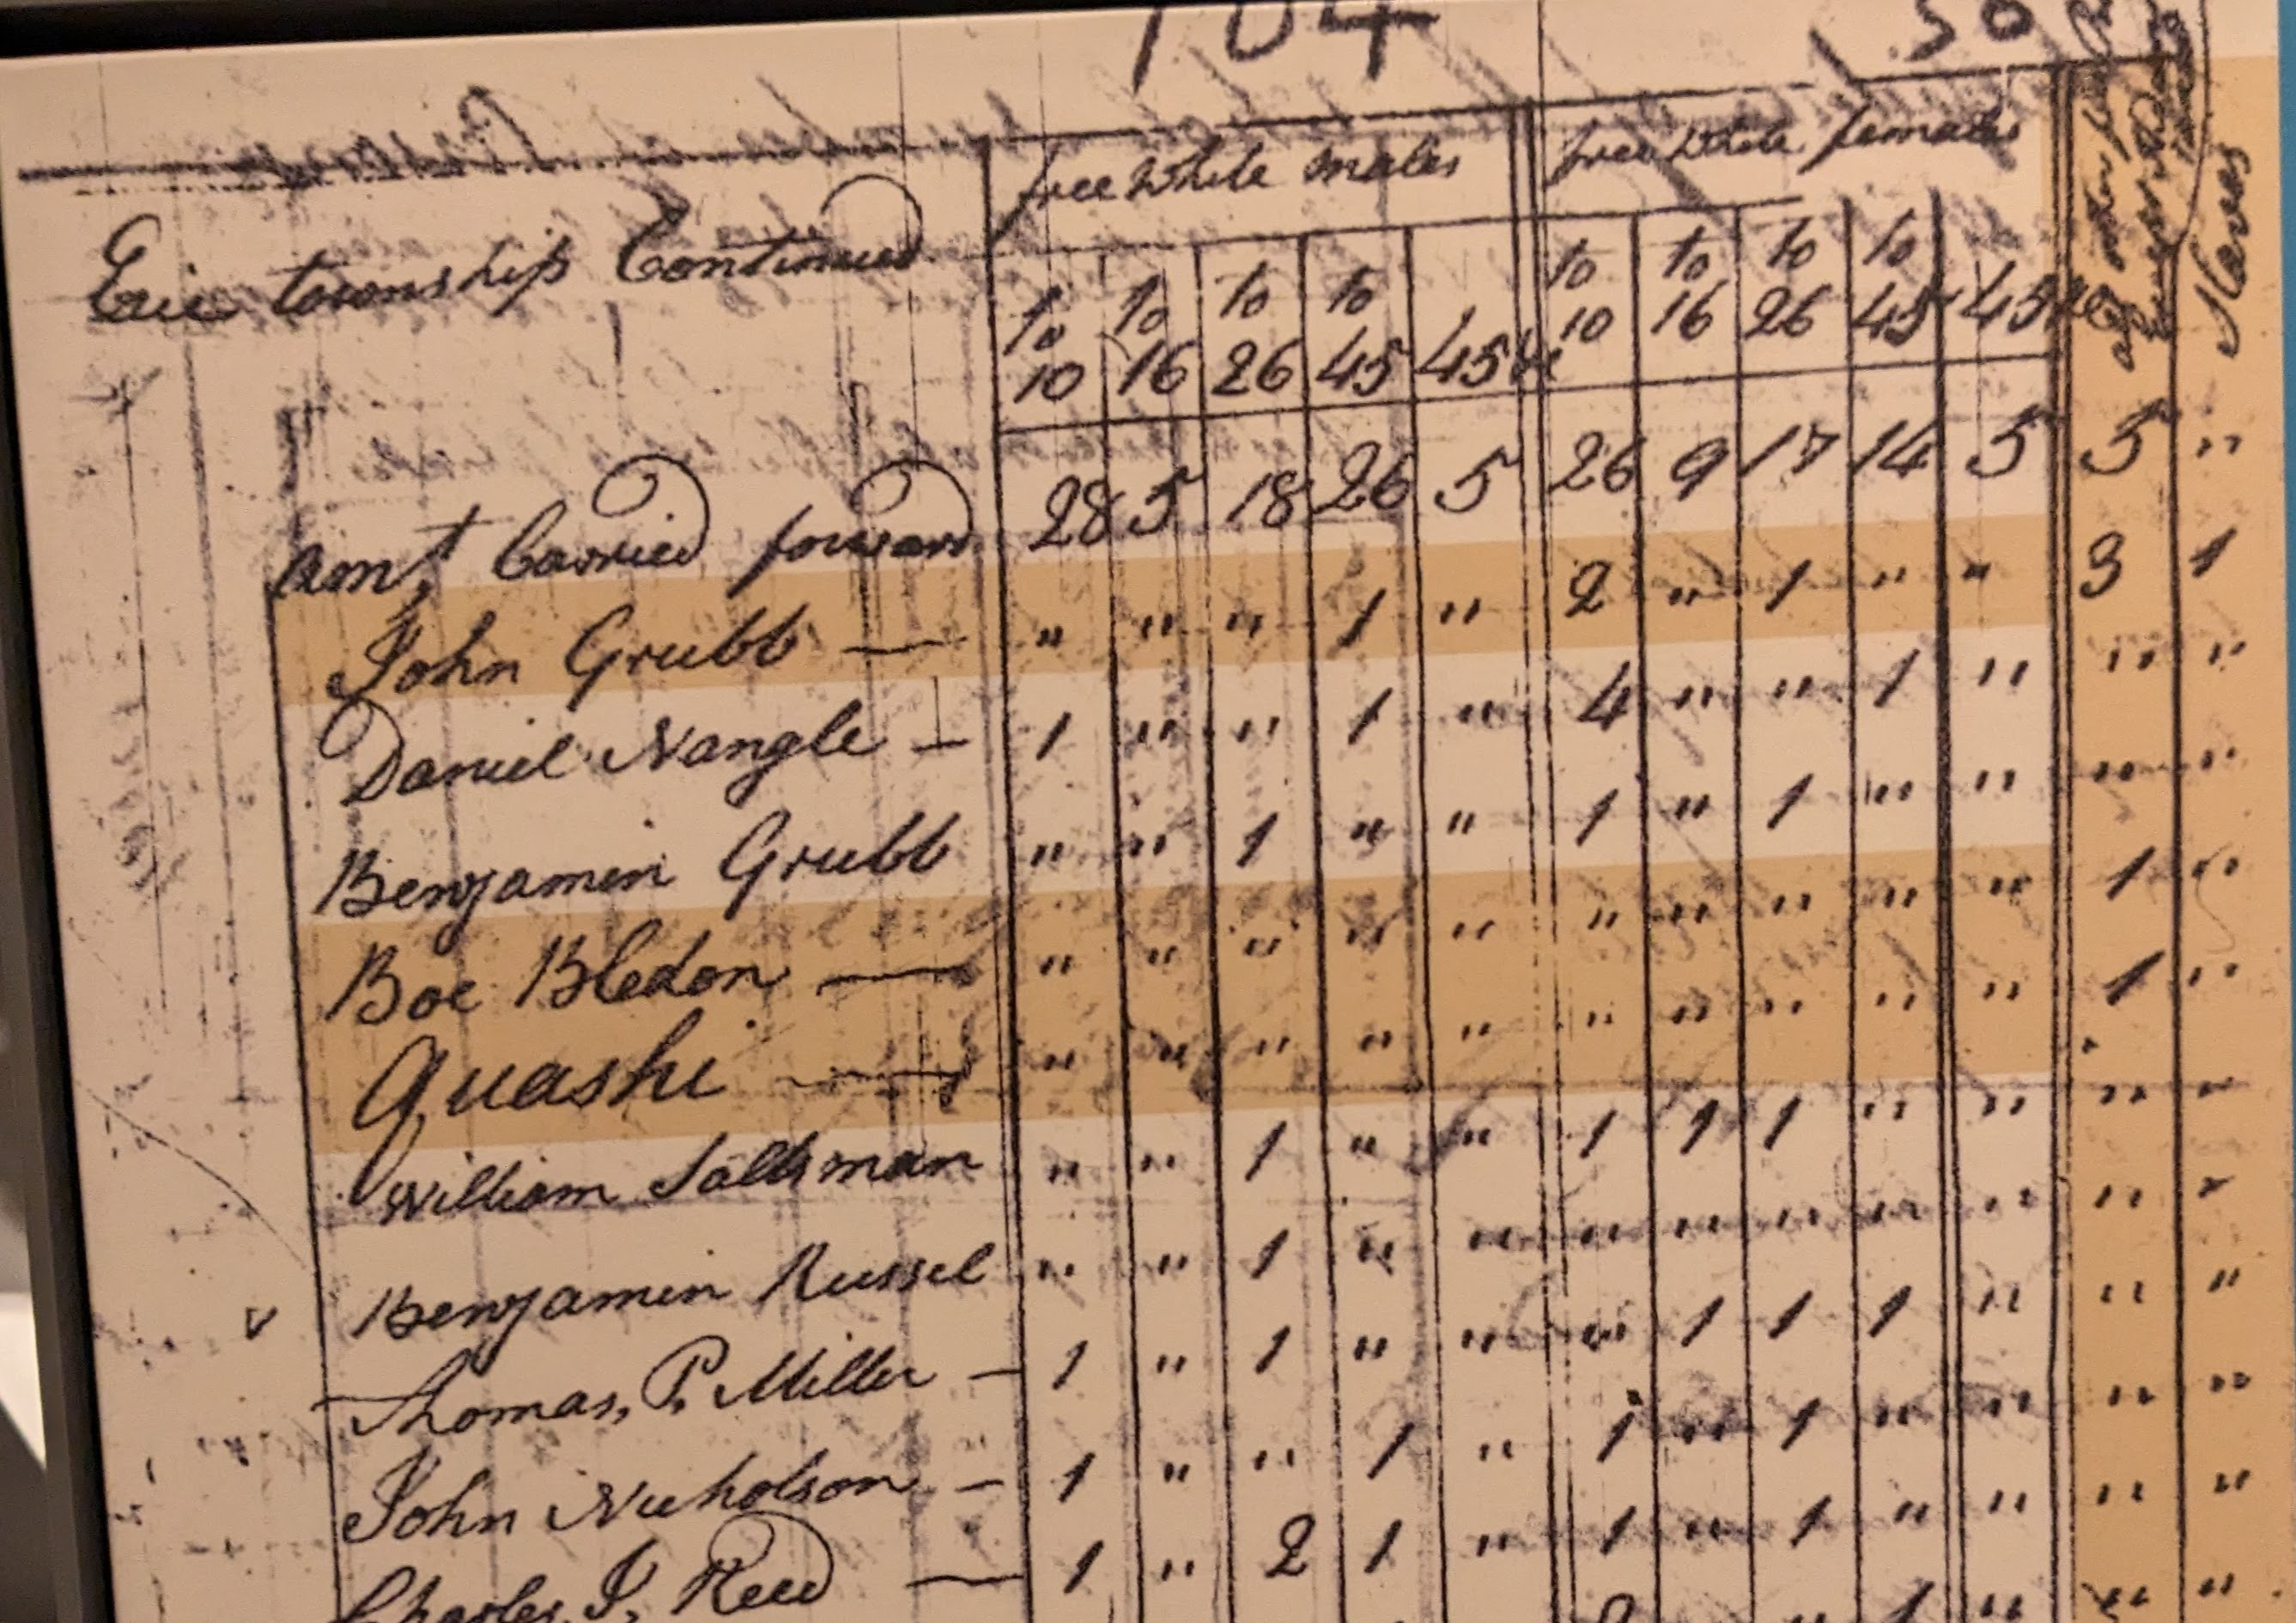 104
free white males free white females
Slaves
Erie township Continued
to to to to to to to to
10 16 26 45 45 &c 10 16 26 45 45 &c
amt Carried forward 28 5 18 26 5 26 9 17 14 5 5 "
John Grubb — " " " 1 " 2 " 1 " " 3 1
Daniel Nangle — 1 " " 1 " 4 " " 1 " " "
Benjamin Grubb " " 1 " " 1 " 1 " " " "
Boe Bledon — " " " " " " " " " " 1 "
Quashi — " " " " " " " " " " 1 "
William Saltsman " " 1 " " 1 1 1 " " " "
Benjamin Russel " " 1 " " " " " " " " "
Thomas, P, Miller — 1 " 1 " " " 1 1 1 " " "
John Nicholson — 1 " " 1 " 1 " 1 " " " "
Charles, J, Reed — 1 " 2 1 " 1 " 1 " " " "